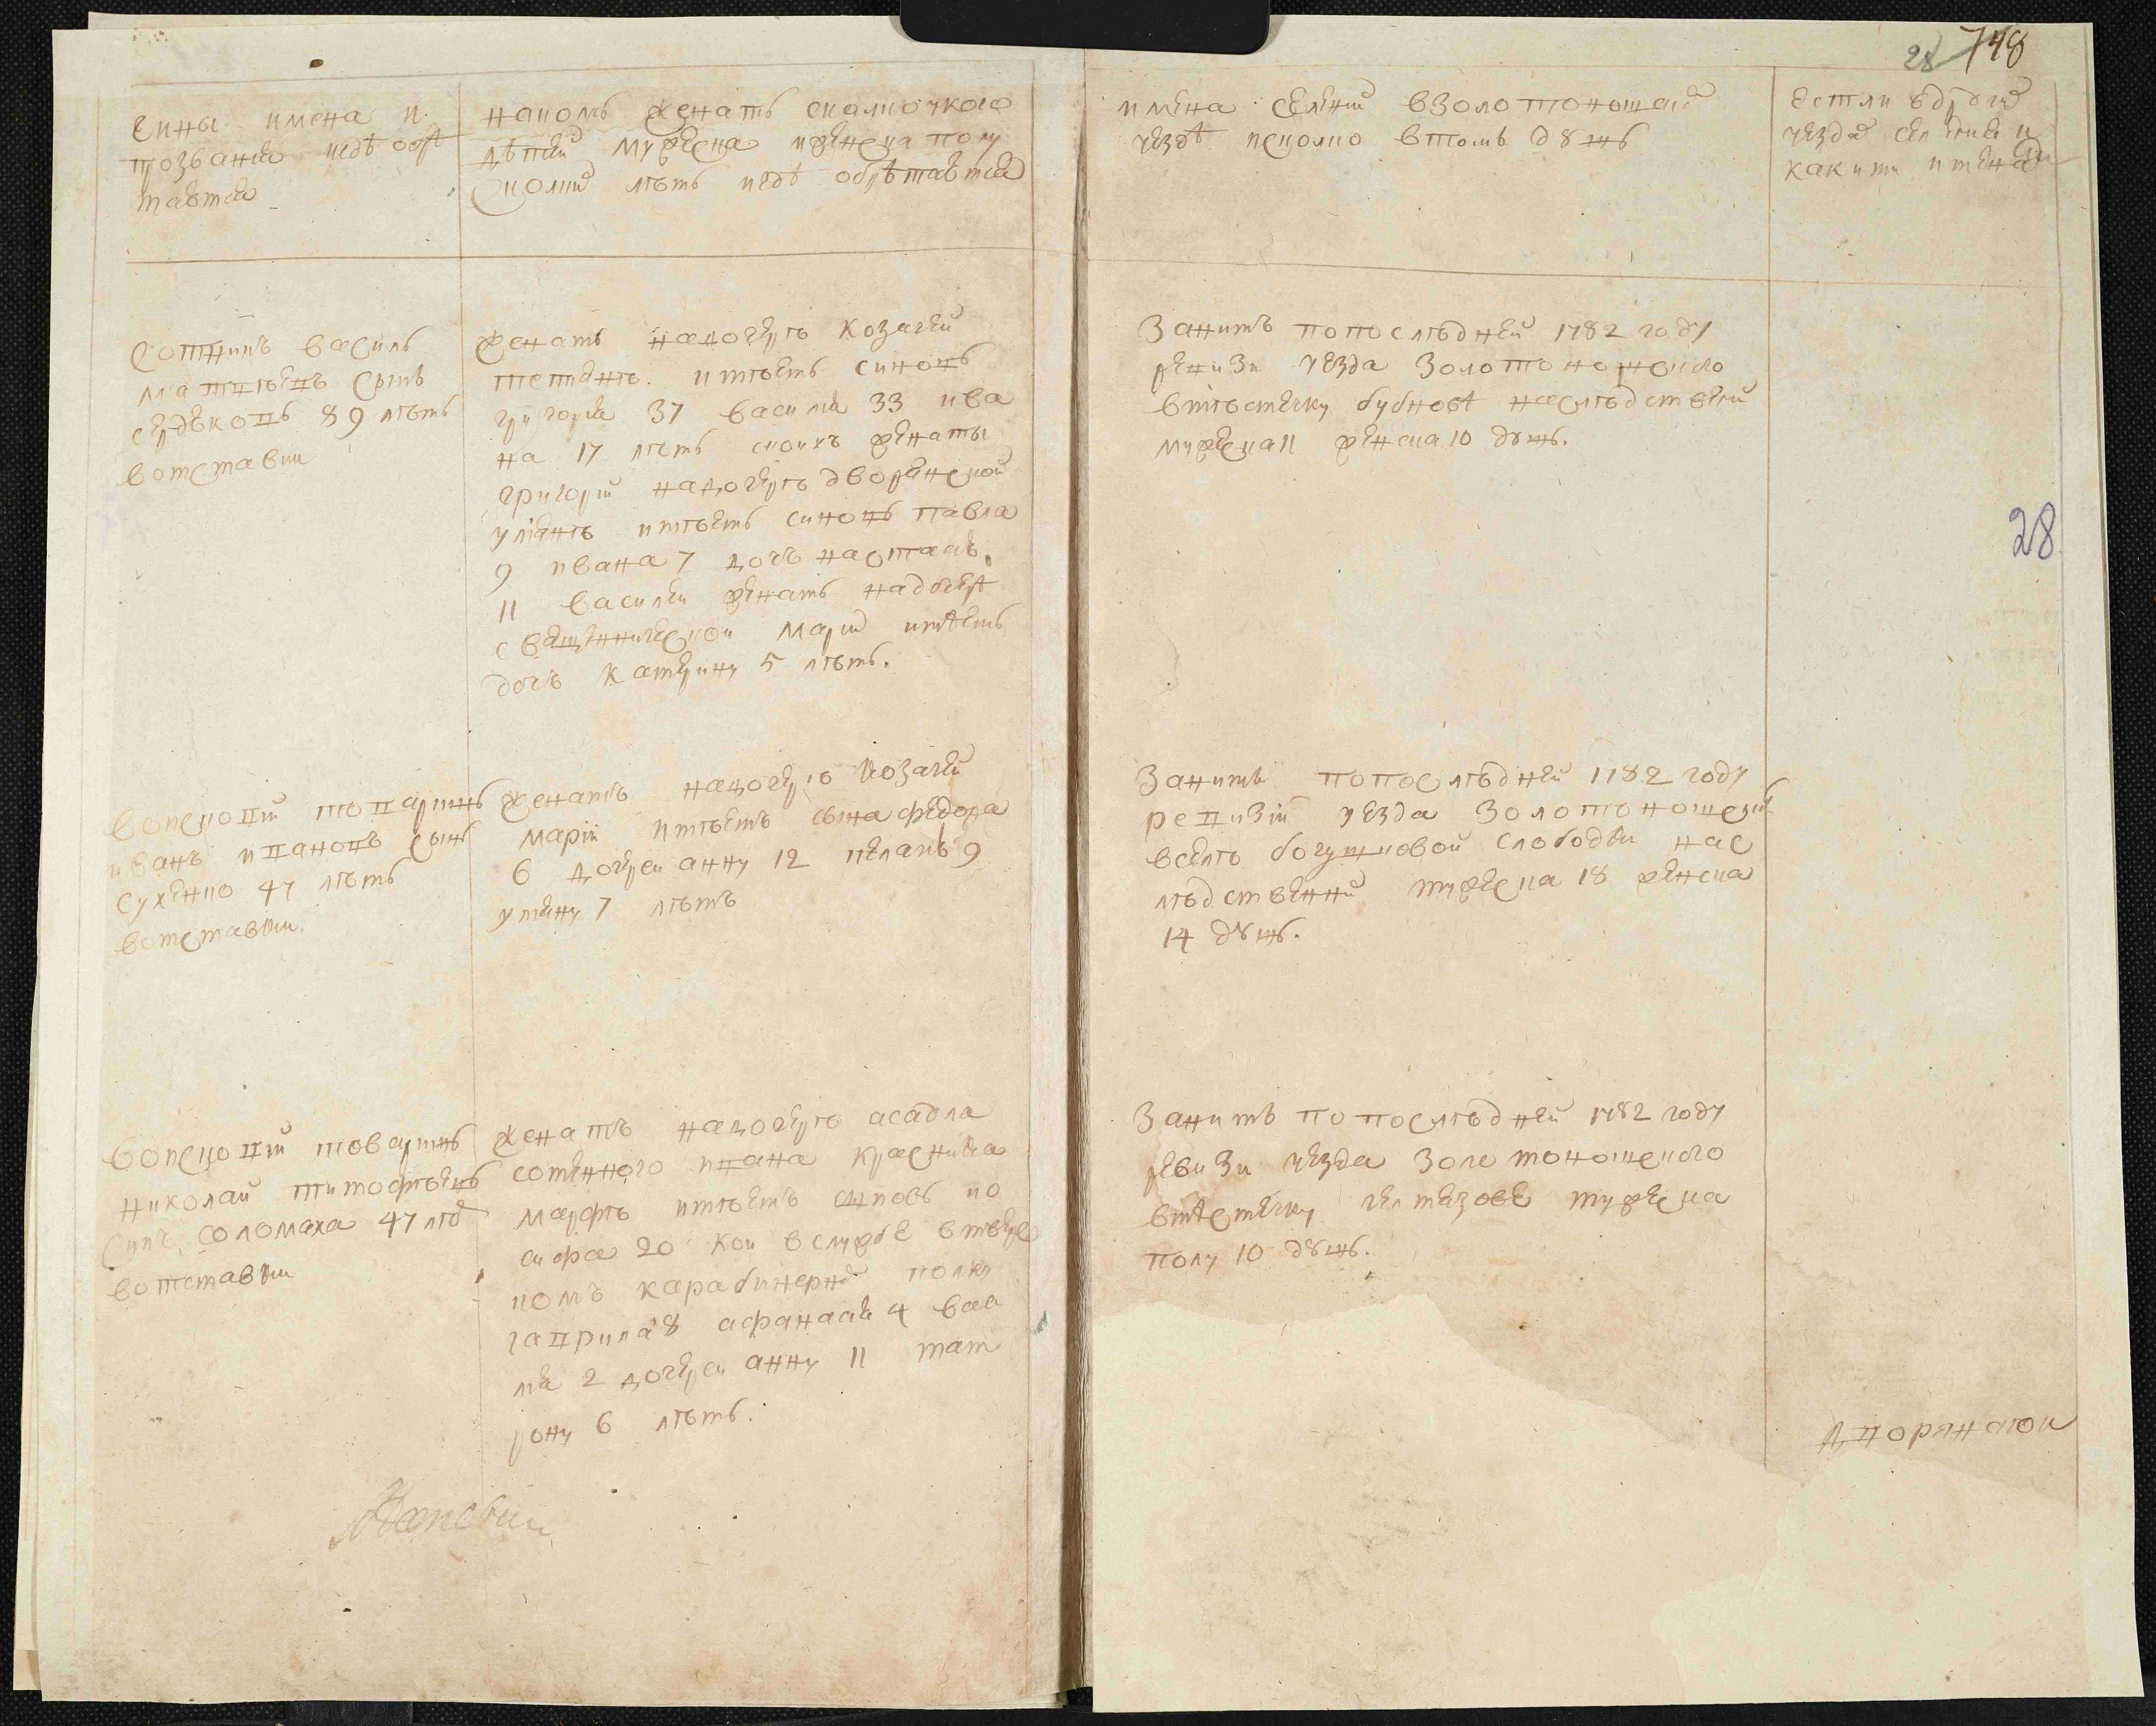 28 748
чины имена и
прозвания и гдѣ обрѣ
таются
на комъ женатъ сколко у кого
дѣтей мужеска и женска полу
сколких лѣтъ и гдѣ обрѣтаются
имена селений в золотоношском
уезде и сколко в томъ душъ
естли в других
уездах селения и
какими имена
ми
Сотникъ василь
матвѣевъ сынъ
89 лѣтъ
вотставки
женатъ надочерѣ козачей
имѣетъ синовъ
григория 37 василия 33 ива
на 17 лѣтъ с коихъ женаты
григорий надочерѣ дворянской
улиянѣ имѣетъ синовъ павла
9 ивана 7 дочъ настасию
11 василий женатъ надочерѣ
священнической марии имѣетъ
дочъ катерину 5 лѣтъ.
Занимъ попослѣдней 1782 году
ревизи уезда золотоношского
вмѣстечку бубновѣ наслѣдственних
мужеска 11 женска 10 душъ.
28
войсковий товаришъ
иванъ ивановъ сынъ
сухенко 47 лѣтъ
вотставки.
женатъ надочерѣ козачей
марiи имѣетъ сына федора
6 дочерей анну 12 пелагию 9
улияну 7 лѣтъ
Занимъ попослѣдней 1782 году
ревизiи уезда золотоношского
вселѣ богушковой слободки нас
лѣдственних мужеска 18 женска
14 душъ.
войсковий товаришъ
николай тимофѣевъ
синъ соломаха 47 лѣтъ
вотставки
женатъ надочерѣ асаула
сотенного ивана красника
марфѣ имѣетъ синовъ ио
сифа 20 кои вслужбе втвер
скомъ карабинерномъ полку
гаврила 8 афанасия 4 васи
лия 2 дочерей анну 11 мат
рону 6 лѣтъ.
Занимъ попослѣдней 1782 году
ревизи уезда золотоношского
вмѣстечку гелмязове мужеска
полу 10 душъ.
дворянской